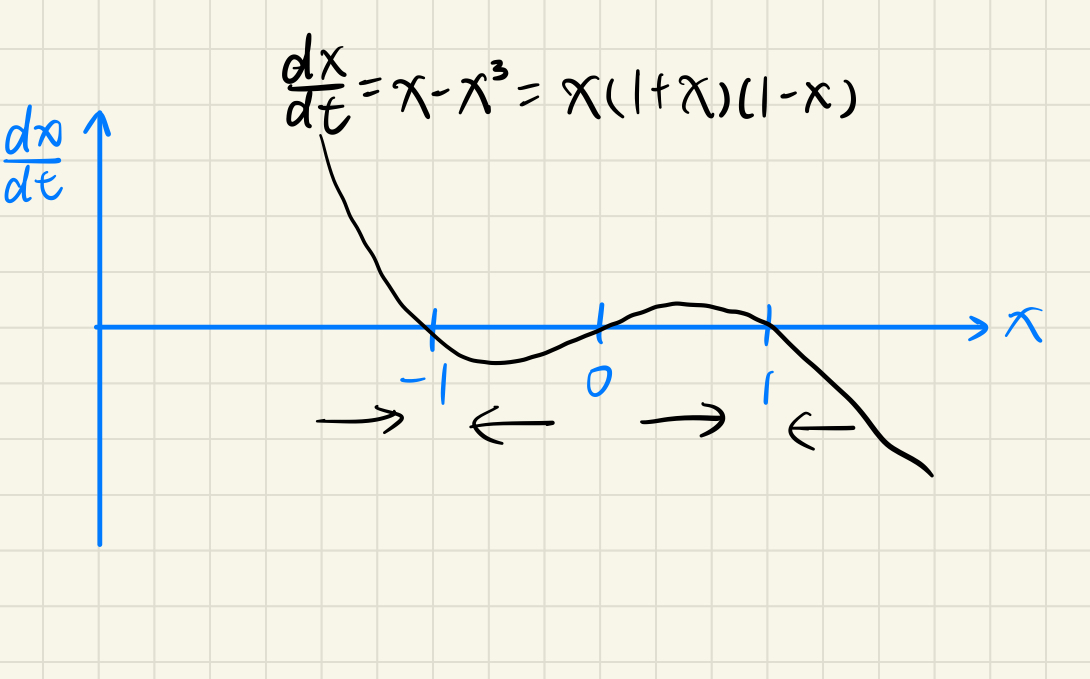 dx/dt = x - x³ = x(1+x)(1-x)
dx/dt
x
-1 0 1